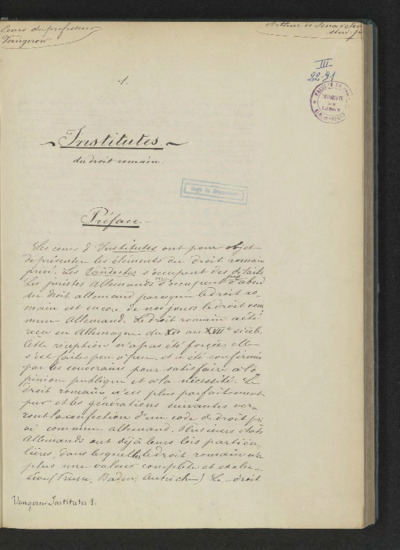 Cours du professeur
Vangerow
Arthur de Senarclens
III
22.21
1.
Institutes
du droit romain.
Préface
Les cours d'Institutes ont pour objet
de présenter les éléments du droit romain
pur. Les Pandectes s'occupent des détails
Les juristes Allemands s'occupent d'abord
du droit allemand parceque le droit ro-
main est encore de nos jours le droit com
mun Allemand. Le droit romain a été
reçu en Allemagne du XV au XVIIe siècle.
Cette réception n'a pas été forcée elle
s'est faite peu à peu et a été confirmée
par les souverains pour satisfaire à l'o
pinion publique et à la nécessité. Le
droit romain n'est plus parfaitement
pur et les générations suivantes ver-
ront la confection d'un code de droit pri
vé commun allemand. Plusieurs états
Allemands ont déjà leurs lois particu
lières, dans lesquelles le droit romain n'a
plus une valeur complète et exclu-
sive (Prusse, Baden, Autriche) Le droit
Vangerow Institutes 1.